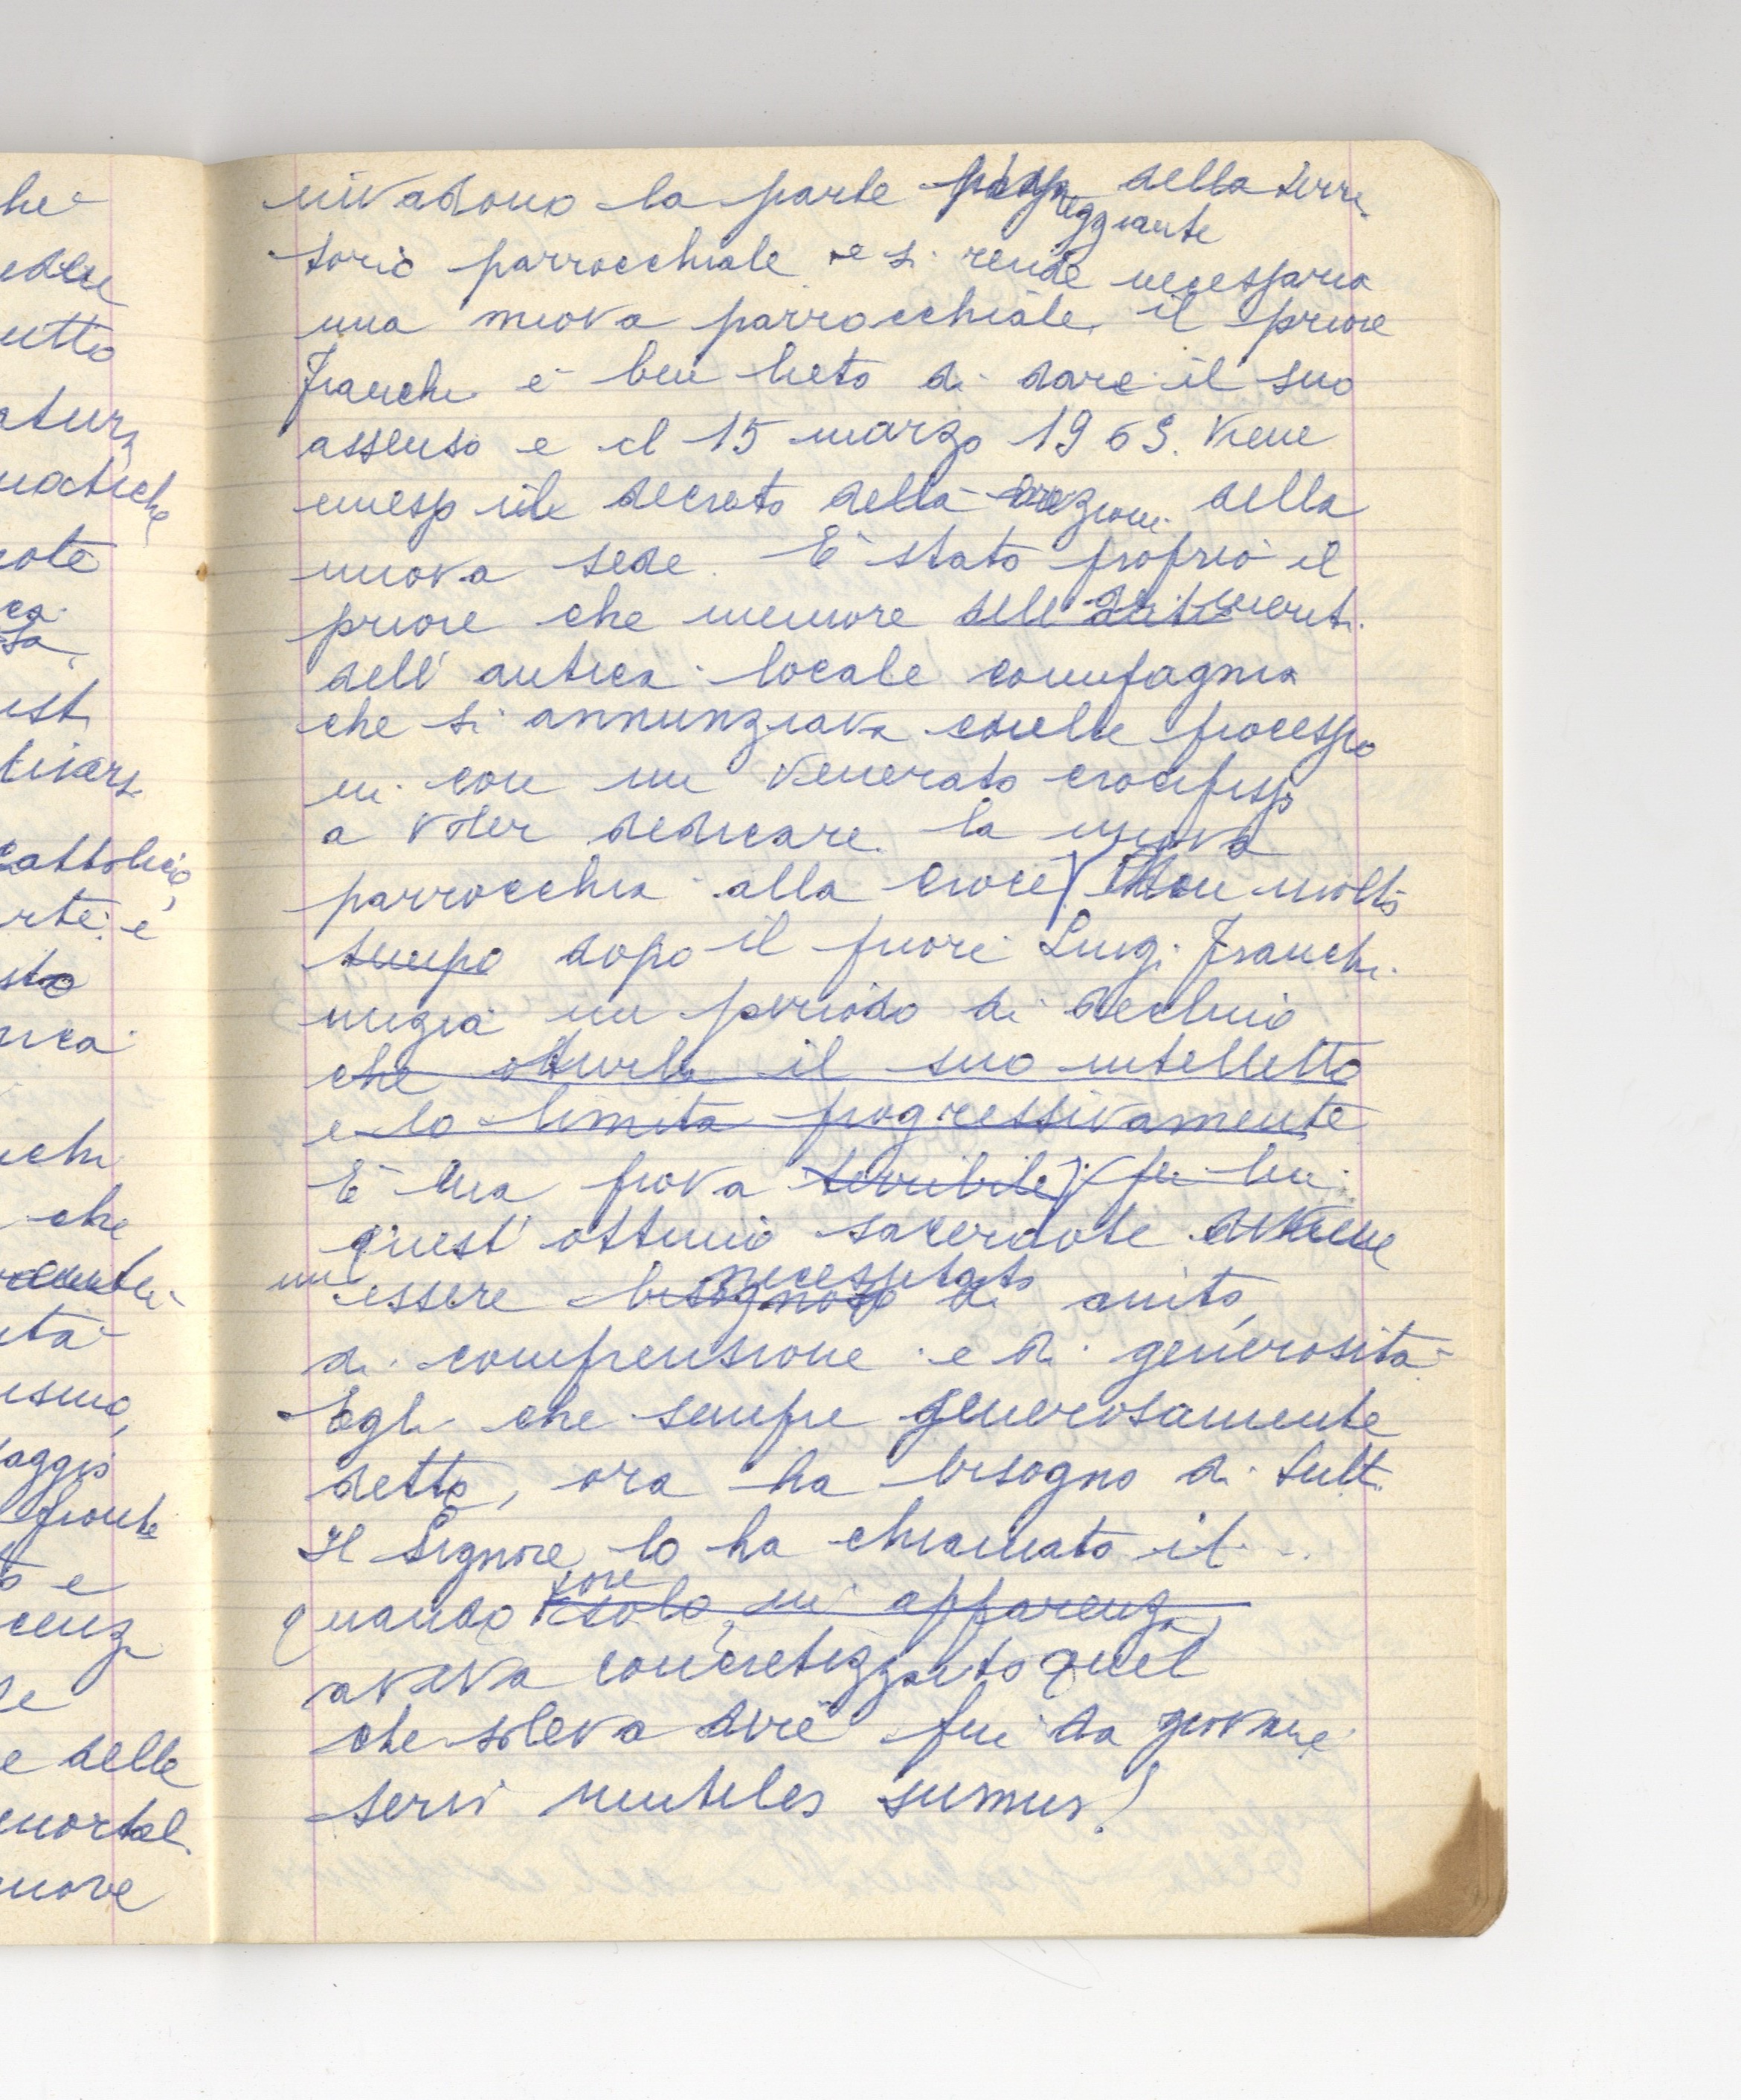 he
utto
cattolico,
rte: e
sto
nica
che
ità
aggio
fronte
e
e delle
mortal
nuove
invadono la parte pianeggiante della terri
torio parrocchiale e si rende necessaria
una nuova parrocchiale, il priore
Franchi è ben lieto di dare il suo
assenso e il 15 marzo 1969. Viene
emesso il decreto della erezione della
nuova sede. È stato proprio il
priore che memore dell
dell'antica locale compagnia
che si annunziava colle processio
ni con un venerato crocifisso
a voler dedicare la nuova
parrocchia alla Croce Non molto
tempo dopo il priore Luigi Franchi
inizia un periodo di declino
che ottura il suo intelletto
e lo limita progressivamente
È una prova terribile per lui:
quest'ottimo sacerdote diviene
un essere bisognoso necessitato di aiuto,
di comprensione e di generosità
Egli che sempre generosamente
detto, ora ha bisogno di tutti
Il Signore lo ha chiamato il ...
quando solo, in apparenza,
aveva concretizzato quel
che soleva dire fin da giovane
servi inutiles sumus!